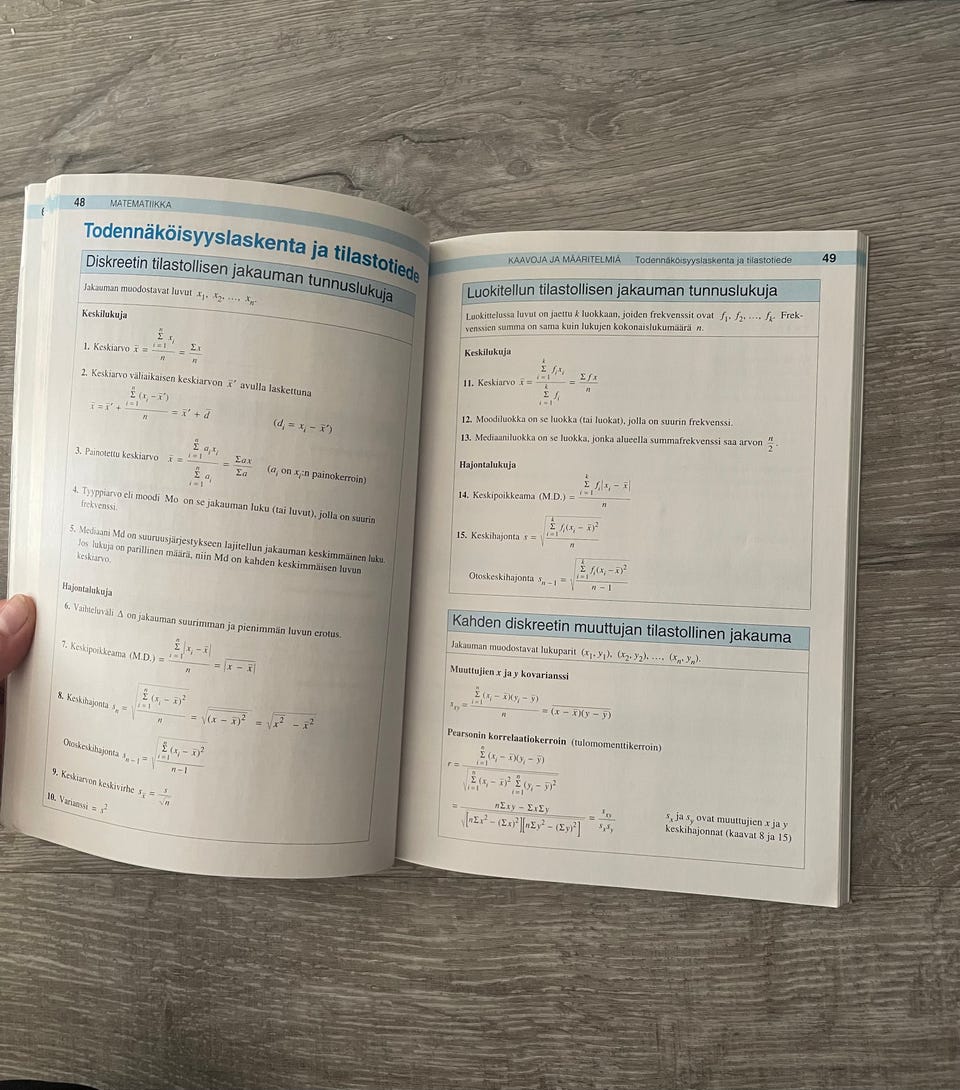 48 MATEMATIIKKA
Todennäköisyyslaskenta ja tilastotiede
Diskreetin tilastollisen jakauman tunnuslukuja
Jakauman muodostavat luvut x₁, x₂, ..., xₙ.
Keskilukuja
1. Keskiarvo x̄ = (Σ_{i=1}^{n} xᵢ)/n = Σx/n
2. Keskiarvo väliaikaisen keskiarvon x̄′ avulla laskettuna
x̄ = x̄′ + (Σ_{i=1}^{n} (xᵢ − x̄′))/n = x̄′ + d̄ (dᵢ = xᵢ − x̄′)
3. Painotettu keskiarvo x̄ = (Σ_{i=1}^{n} aᵢxᵢ)/(Σ_{i=1}^{n} aᵢ) = Σax/Σa (aᵢ on xᵢ:n painokerroin)
4. Tyyppiarvo eli moodi Mo on se jakauman luku (tai luvut), jolla on suurin
frekvenssi.
5. Mediaani Md on suuruusjärjestykseen lajitellun jakauman keskimmäinen luku.
Jos lukuja on parillinen määrä, niin Md on kahden keskimmäisen luvun
keskiarvo.
Hajontalukuja
6. Vaihteluväli Δ on jakauman suurimman ja pienimmän luvun erotus.
7. Keskipoikkeama (M.D.) = (Σ_{i=1}^{n} |xᵢ − x̄|)/n = \overline{|x − x̄|}
8. Keskihajonta sₙ = √((Σ_{i=1}^{n} (xᵢ − x̄)²)/n) = √(\overline{(x − x̄)²}) = √(\overline{x²} − x̄²)
Otoskeskihajonta sₙ₋₁ = √((Σ_{i=1}^{n} (xᵢ − x̄)²)/(n−1))
9. Keskiarvon keskivirhe s_x̄ = s/√n
10. Varianssi = s²
KAAVOJA JA MÄÄRITELMIÄ Todennäköisyyslaskenta ja tilastotiede 49
Luokitellun tilastollisen jakauman tunnuslukuja
Luokittelussa luvut on jaettu k luokkaan, joiden frekvenssit ovat f₁, f₂, ..., fₖ. Frek-
venssien summa on sama kuin lukujen kokonaislukumäärä n.
Keskilukuja
11. Keskiarvo x̄ = (Σ_{i=1}^{k} fᵢxᵢ)/(Σ_{i=1}^{k} fᵢ) = Σfx/n
12. Moodiluokka on se luokka (tai luokat), jolla on suurin frekvenssi.
13. Mediaaniluokka on se luokka, jonka alueella summafrekvenssi saa arvon n/2.
Hajontalukuja
14. Keskipoikkeama (M.D.) = (Σ_{i=1}^{k} fᵢ|xᵢ − x̄|)/n
15. Keskihajonta s = √((Σ_{i=1}^{k} fᵢ(xᵢ − x̄)²)/n)
Otoskeskihajonta sₙ₋₁ = √((Σ_{i=1}^{k} fᵢ(xᵢ − x̄)²)/(n − 1))
Kahden diskreetin muuttujan tilastollinen jakauma
Jakauman muodostavat lukuparit (x₁, y₁), (x₂, y₂), ..., (xₙ, yₙ).
Muuttujien x ja y kovarianssi
s_xy = (Σ_{i=1}^{n} (xᵢ − x̄)(yᵢ − ȳ))/n = \overline{(x − x̄)(y − ȳ)}
Pearsonin korrelaatiokerroin (tulomomenttikerroin)
r = (Σ_{i=1}^{n} (xᵢ − x̄)(yᵢ − ȳ))/√(Σ_{i=1}^{n} (xᵢ − x̄)² Σ_{i=1}^{n} (yᵢ − ȳ)²)
= (nΣxy − ΣxΣy)/√([nΣx² − (Σx)²][nΣy² − (Σy)²]) = s_xy/(s_x s_y)
s_x ja s_y ovat muuttujien x ja y
keskihajonnat (kaavat 8 ja 15)